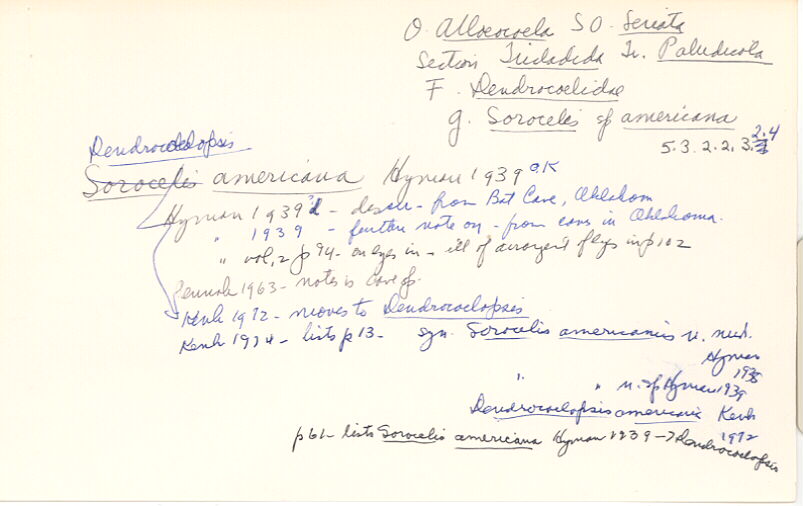 O. Alloeocoela SO. Seriata
Section Tricladida Tr. Paludicola
F. Dendrocoelidae
g. Sorocelis sp americana
5.3.2.2.3.2.4
Dendrocoelopsis
Sorocelis americana Hyman 1939 OK
Hyman 1939 d - descr - from Bat Cave, Oklahom
" 1939 - further note on - from cave in Oklahoma.
" vol. 2 p 94 - on eyes in - ill of arrangent p 102
1963 - notes is cave sp.
Kenk 1972 - moves to Dendrocoelopsis
Kenk 1974 - lists p 13 - syn. Sorocelis americanus n. nud.
Hyman
1938
" " n. sp Hyman 1939
Dendrocoelopsis americana Kenk
1972
p 61 - lists Sorocelis americana Hyman 1939 -> Dendrocoelopsis